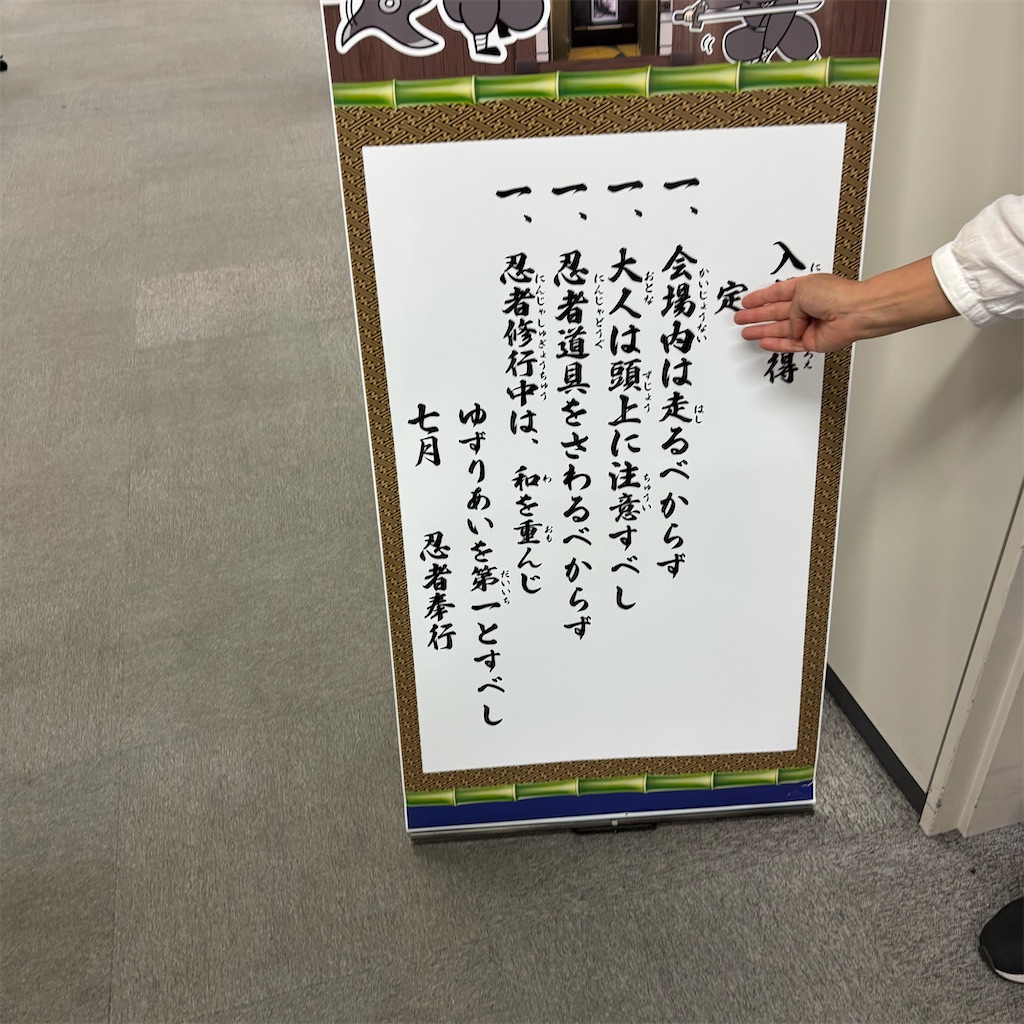 入 得
定
一、会場内は走るべからず
一、大人は頭上に注意すべし
一、忍者道具をさわるべからず
一、忍者修行中は、和を重んじ
ゆずりあいを第一とすべし
七月 忍者奉行